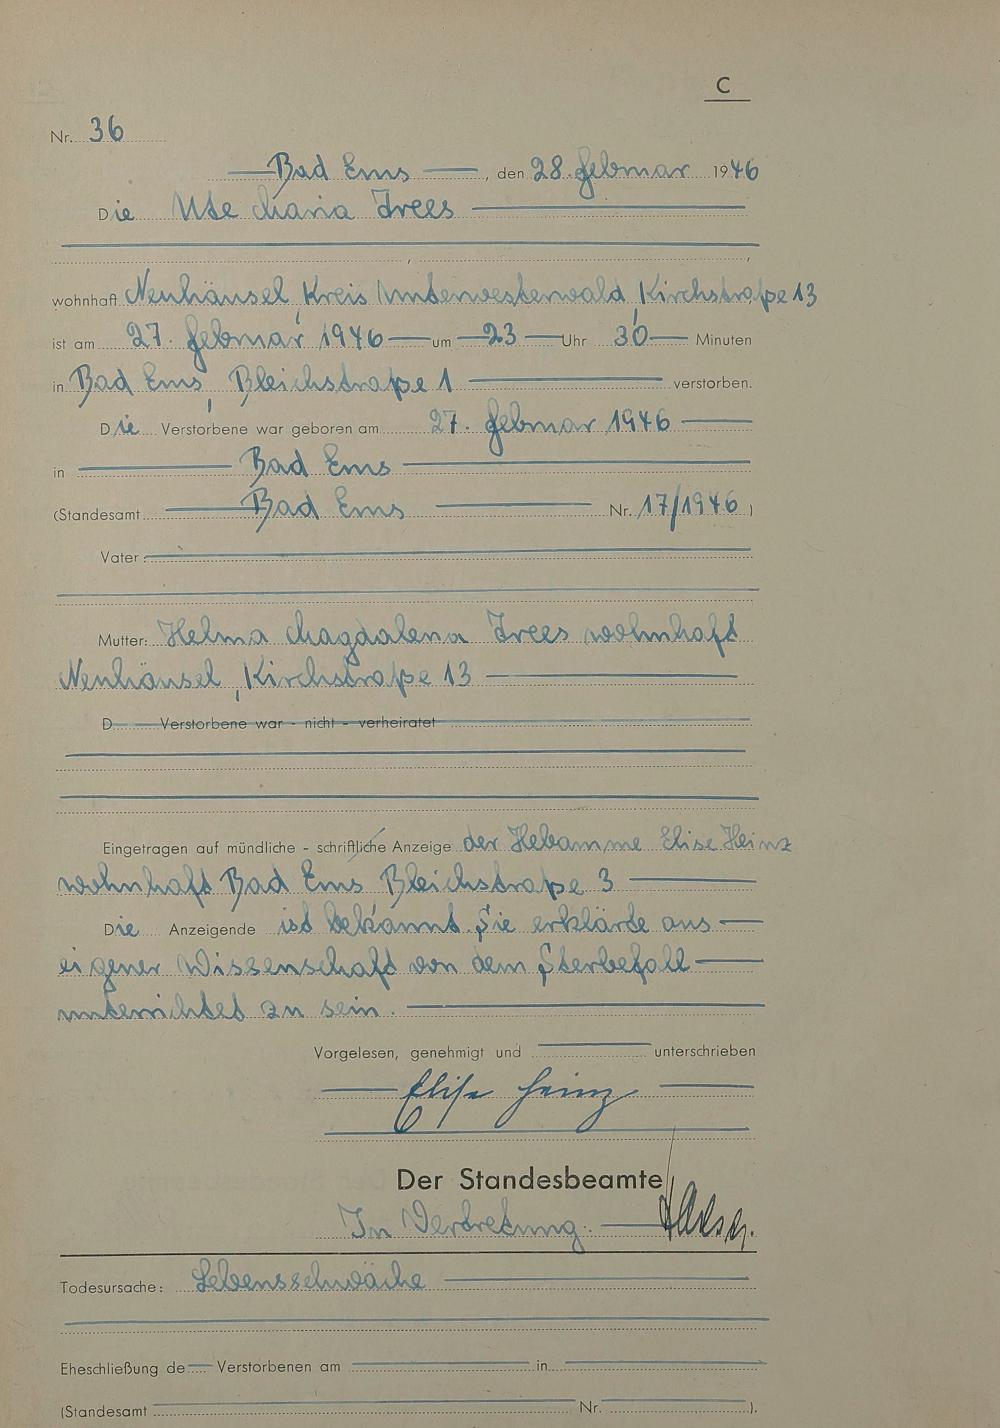 C
Nr. 36
Bad Ems, den 28. Februar 1946
Die Ute Maria Frees
wohnhaft Neuhäusel, Kreis Unterwesterwald, Kirchstraße 13
ist am 27. Februar 1946 um 23 Uhr 30 Minuten
in Bad Ems, Bleichstraße 1 verstorben.
Die Verstorbene war geboren am 27. Februar 1946
in Bad Ems
(Standesamt Bad Ems Nr. 17/1946)
Vater:
Mutter: Helma Magdalena Frees wohnhaft
Neuhäusel, Kirchstraße 13
D Verstorbene war - nicht - verheiratet
Eingetragen auf mündliche - schriftliche Anzeige der Hebamme Elise Heinz
wohnhaft Bad Ems Bleichstraße 3
Die Anzeigende ist bekannt. Sie erklärte aus
eigener Wissenschaft von dem Sterbefall
unterrichtet zu sein.
Vorgelesen, genehmigt und unterschrieben
Elise Heinz
Der Standesbeamte
In Vertretung:
Todesursache: Lebensschwäche
Eheschließung de Verstorbenen am in
(Standesamt Nr. ).